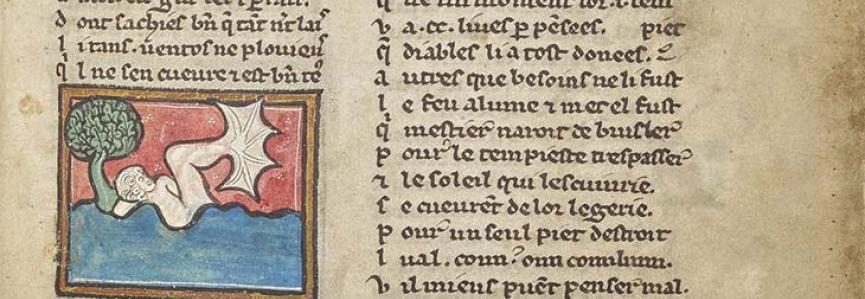 d ont sachies bñ q̃ tãt
l i tans . uentos ne plouieus
q̃ l ne sen cueure ⁊ est bñ
v a .cc. liues ꝑ pẽsees. piet
q̃ diables li a tost donees. ⁊
a utres que besoins ne li fust
l e feu alume ⁊ met el fust
q̃ mestier nauoit de brusler
p our le tempieste trespasser
⁊ le soleil qui
s e cueurẽt de lor legerie.
p our un seul piet destroit
l ual.
v il mieus puẽt penser mal.